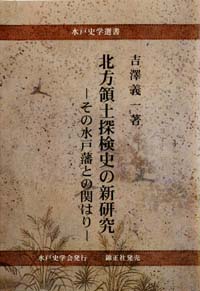 水戸史学選書
吉澤義一著
北方領土探検史の新研究
―その水戸藩との関はり―
水戸史学会発行
錦正社発売